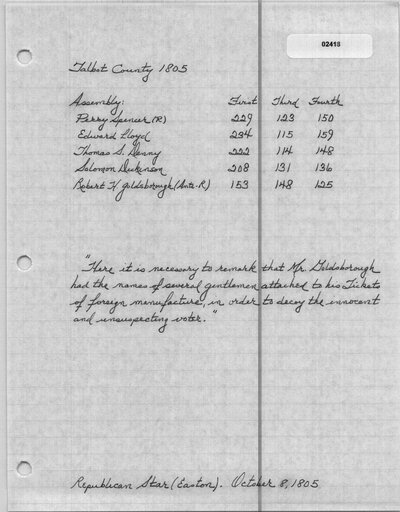 02418
Talbot County 1805
Assembly: First Third Fourth
Perry Spencer (R) 229 123 150
Edward Lloyd 234 115 159
Thomas S. Denny 222 114 148
Solomon Dickinson 208 131 136
Robert H Goldsborough (Anti-R) 153 148 125
"Here it is necessary to remark that Mr. Goldsborough
had the names of several gentlemen attached to his Tickets
of foreign manufacture, in order to decoy the innocent
and unsuspecting voter."
Republican Star (Easton). October 8, 1805